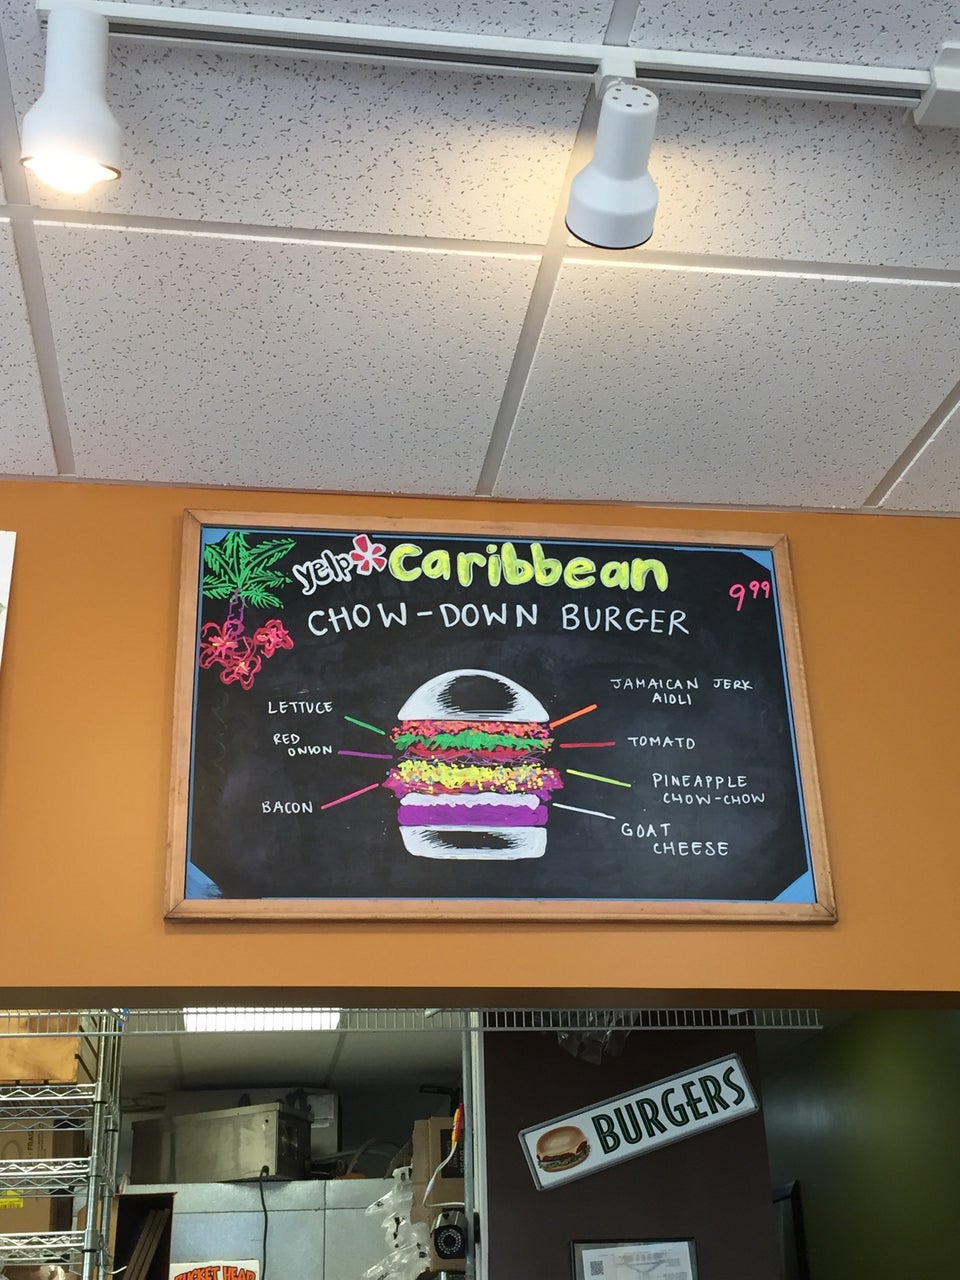 yelp Caribbean
CHOW-DOWN BURGER
9.99
LETTUCE
RED
ONION
BACON
JAMAICAN JERK
AIOLI
TOMATO
PINEAPPLE
CHOW-CHOW
GOAT
CHEESE
BURGERS